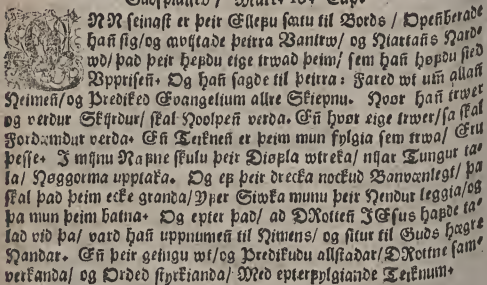 Gudspialled / Marc. 16. Cap.
ENN seinast er þeir Ellefu satu til Bords / Openberade
hañ sig / og avijtade þeirra Vantrw / og Hiartans Hard-
wd / þad þeir hefdu eige trwad þeim / sem hañ høfdu sied
Vpprisen. Og hañ sagde til þeirra: Fared wt um allañ
Heimeñ / og Prediked Evangelium allre Skiepnu. Hvor hañ trwer
og verdur Skijrdur / skal Hoolpeñ verda. Eñ hvør eige trwer / sa skal
Fordæmdur verda. Eñ Teikneñ er þeim mun fylgia sem trwa / Eru
þesse. I mijnu Nafne skulu þeir Diøfla wtreka / nijar Tungur ta-
la / Høggorma upptaka. Og ef þeir drecka nockud Banvænlegt / þa
skal þad þeim ecke granda / Yfer Siwka munu þeir Hendur leggia / og
þa mun þeim batna. Og epter þad / ad DRotteñ JEsus hafde ta-
lad vid þa / vard hañ uppnumeñ til Himens / og situr til Guds hægre
Handar. Eñ þeir geingu wt / og Predikudu allstadar / DRottne sam-
verkanda / og Orded styrkianda / Med epterfylgiande Teiknum.